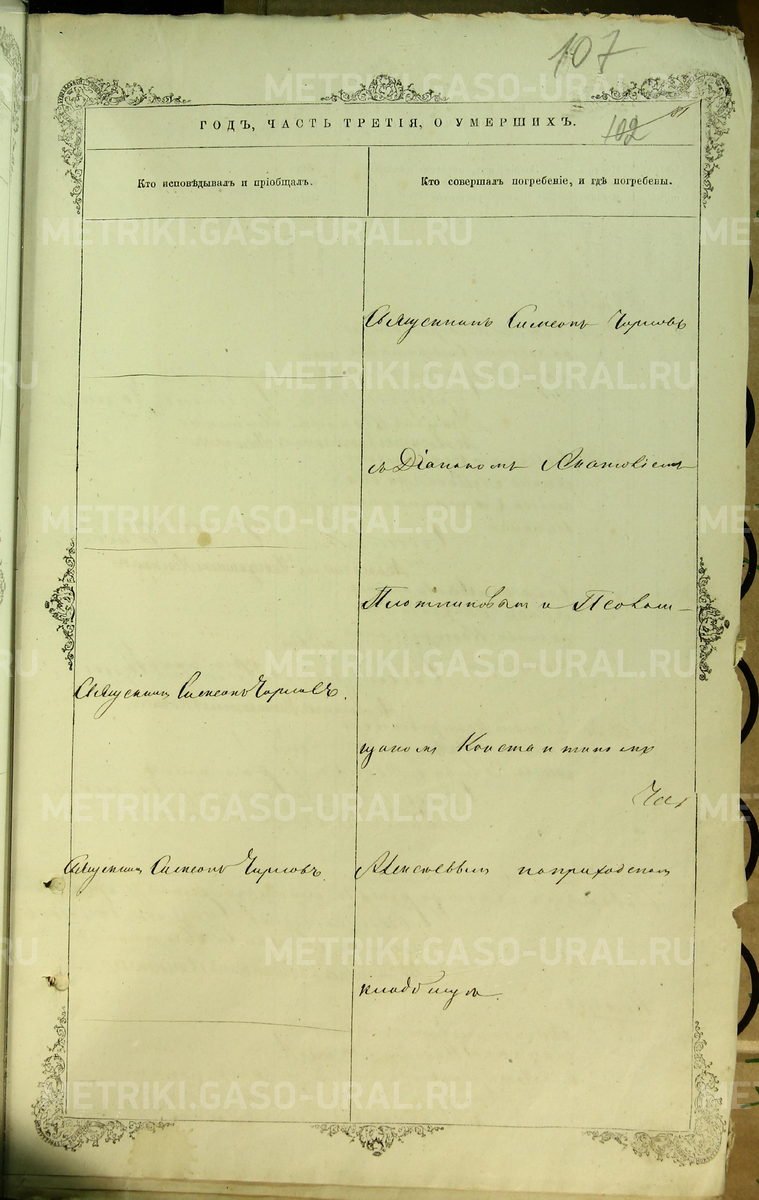 107
ГОДЪ, ЧАСТЬ ТРЕТІЯ, О УМЕРШИХЪ.
102
Кто исповѣдывалъ и пріобщалъ.
Кто совершалъ погребеніе, и гдѣ погребены.
Священникъ Симеонъ
съ Діакономъ
Плотниковымъ и Псалом-
Священникъ Симеонъ
щикомъ Константиномъ
Священникъ Симеонъ
Алексѣевымъ на приходскомъ
кладбищѣ.
METRIKI.GASO-URAL.RU